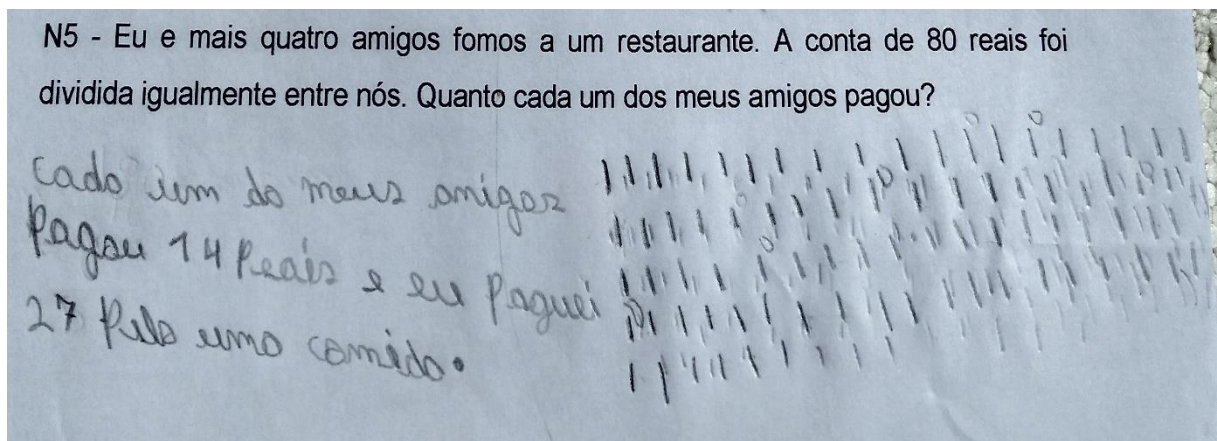 N5 - Eu e mais quatro amigos fomos a um restaurante. A conta de 80 reais foi
dividida igualmente entre nós. Quanto cada um dos meus amigos pagou?
cado um do meus amigos
Pagou 14 Reais e eu Paguei
27 Pelo umo comido.